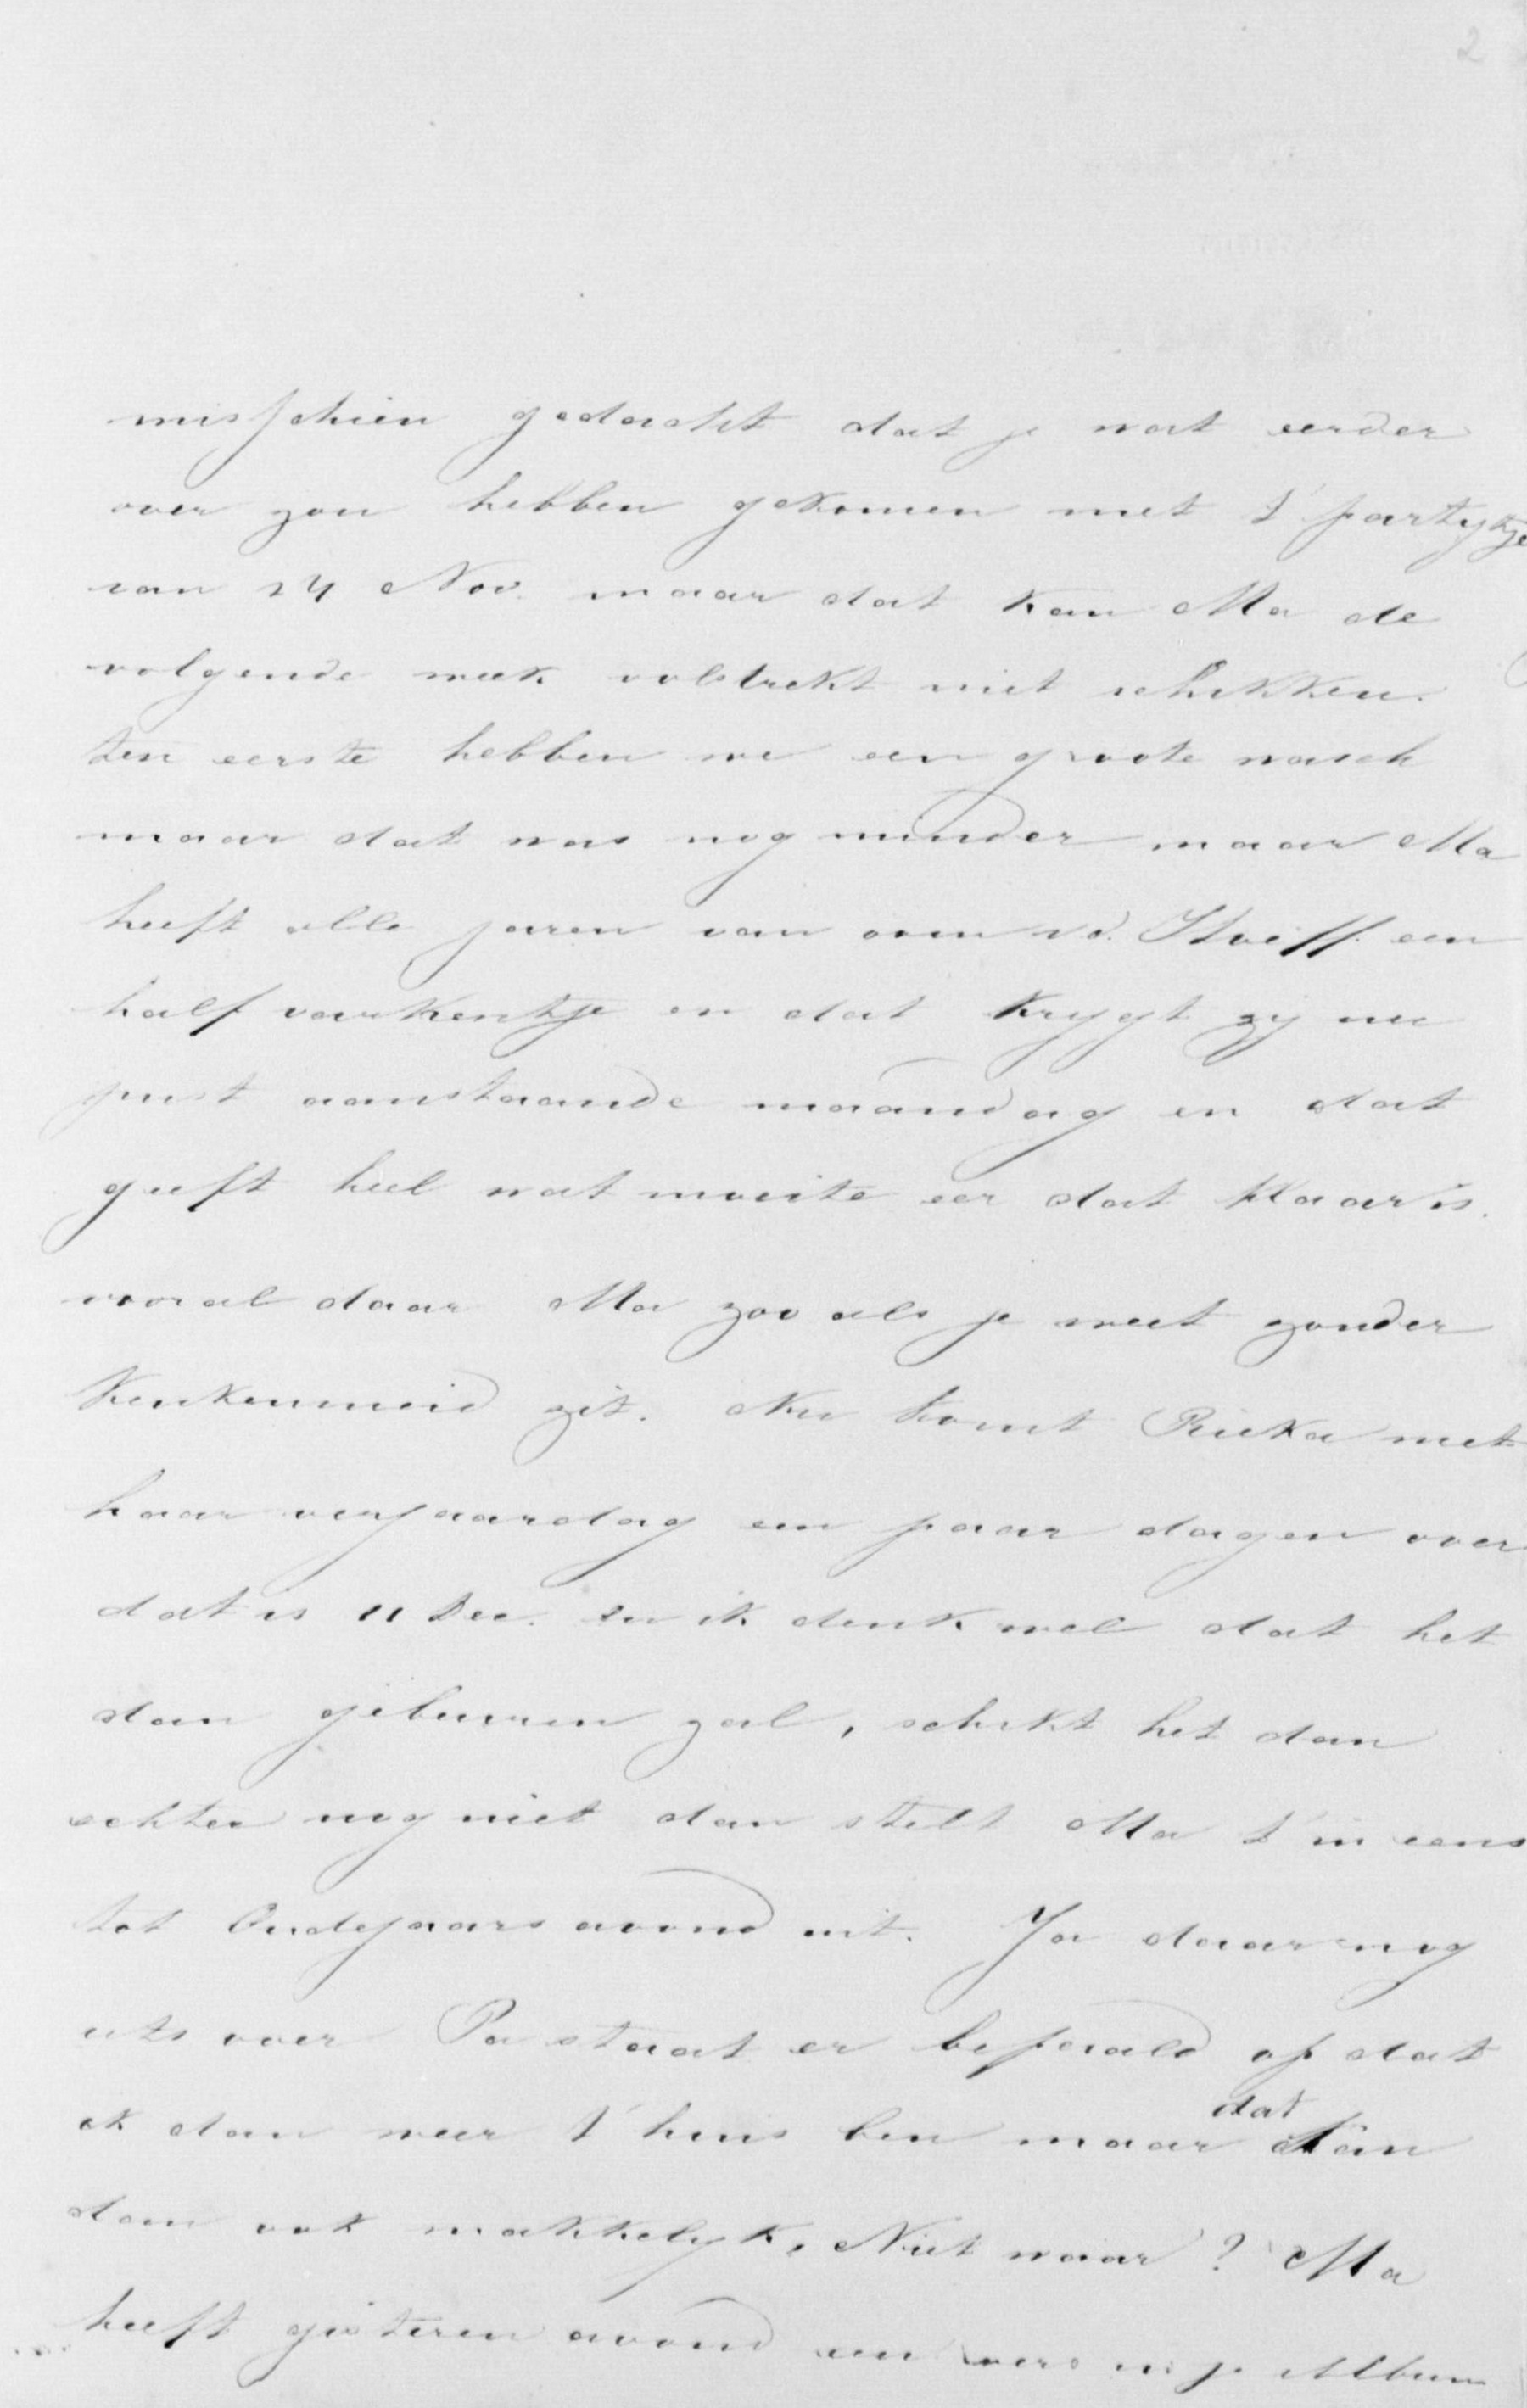 2
misschien gedacht dat je wat eerder
over zou hebben gekomen met 't partytje
van 24 Nov. maar dat kan Ma de
volgende week volstrekt niet schikken.
ten eerste hebben we een groote wasch
maar dat was nog minder maar Ma
heeft alle jaren van oom vd. een
half varkentje en dat krygt zy nu
just aanstaande maandag en dat
geeft heel wat moeite eer dat klaar is.
vooral daar Ma zoo als je weet zonder
Keukenmeid zit. Nu komt Rieka met
haar verjaardag een paar dagen over
dat is 11 Dec. en ik denk wel dat het
dan gebeuren zal, schikt het dan
echter nog niet dan stelt Ma 't in eens
tot Oudejaars avond uit. Ja daar nog
iets over Pa staat er bepaald op dat
ik dan weer t'huis ben maar dat kan
dan ook makkelyk, Niet waar? Ma
heeft gisteren avond een vers in je Album